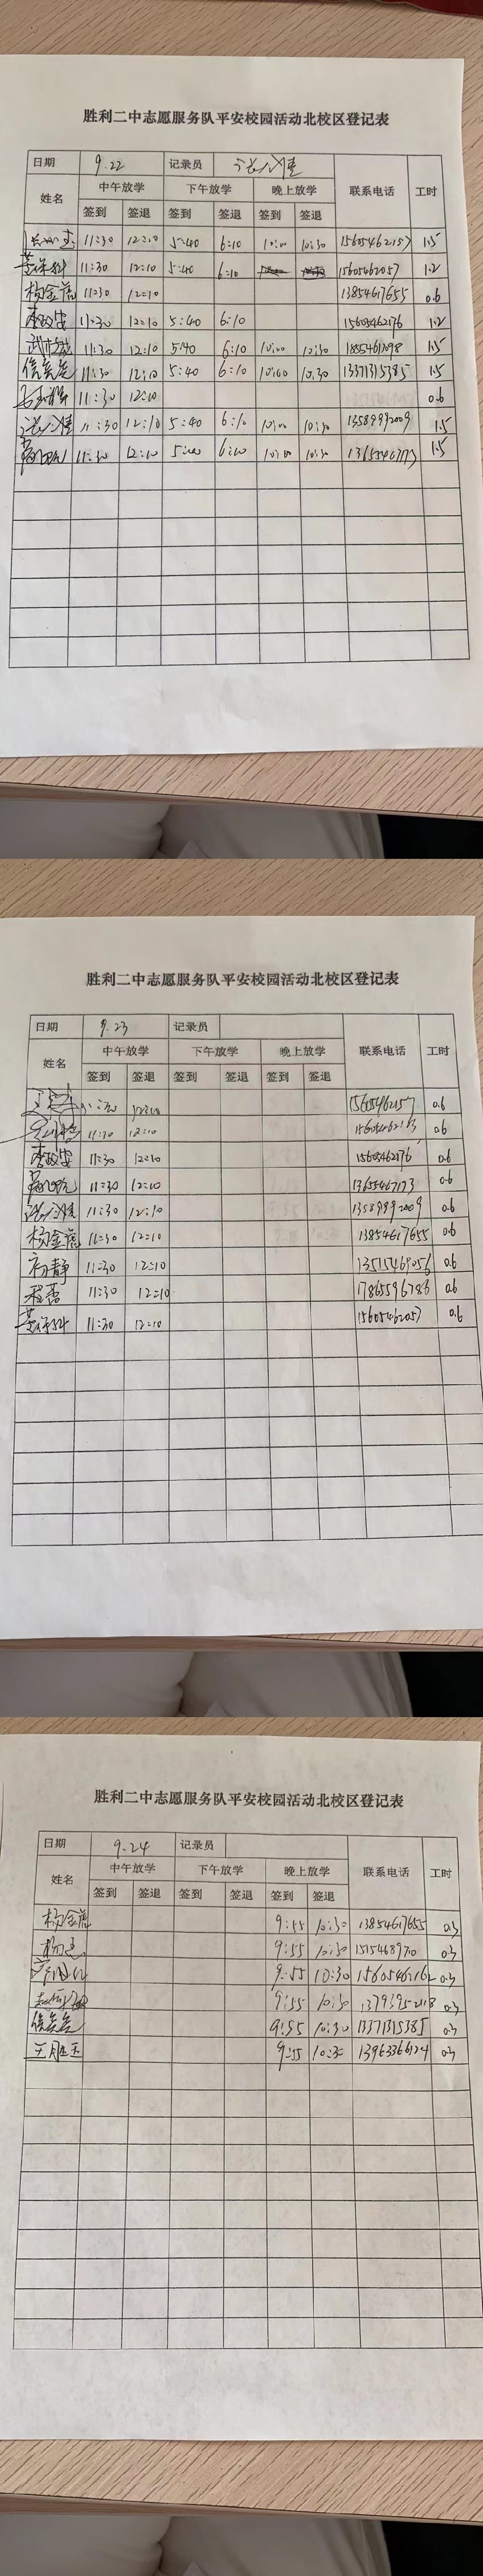 胜利二中志愿服务队平安校园活动北校区登记表
日期 9.22 记录员
姓名 中午放学 下午放学 晚上放学 联系电话 工时
签到 签退 签到 签退 签到 签退
11:30 12:10 5:40 6:10 10:00 10:30 15605462157 1.5
11:30 12:10 5:40 6:10 15605462057 1.2
杨金虎 11:30 12:10 13854617655 0.6
李政安 11:30 12:10 5:40 6:10 15605462176 1.2
11:30 12:10 5:40 6:10 10:00 10:30 1.5
信奕奕 11:30 12:10 5:40 6:10 10:00 10:30 13371315385 1.5
11:30 12:10 0.6
11:30 12:10 5:40 6:10 10:00 10:30 13589992009 1.5
11:30 12:10 6:10 10:00 10:30 13655467173 1.5
胜利二中志愿服务队平安校园活动北校区登记表
日期 9.23 记录员
姓名 中午放学 下午放学 晚上放学 联系电话 工时
签到 签退 签到 签退 签到 签退
15605462157 0.6
11:30 12:10 0.6
李政安 11:30 12:10 15605462176 0.6
11:30 12:10 13655467173 0.6
11:30 12:10 13589992009 0.6
杨金虎 11:30 12:10 13854617655 0.6
初静 11:30 12:10 13515469056 0.6
程蕾 11:30 12:10 17865596786 0.6
11:30 12:10 15605462057 0.6
胜利二中志愿服务队平安校园活动北校区登记表
日期 9.24 记录员
姓名 中午放学 下午放学 晚上放学 联系电话 工时
签到 签退 签到 签退 签到 签退
杨金虎 9:55 10:30 13854617655 0.3
9:55 10:30 0.3
9:55 10:30 15605462162 0.3
9:55 10:30 0.3
信奕奕 9:55 10:30 13371315385 0.3
王胜玉 9:55 10:30 13963366124 0.3